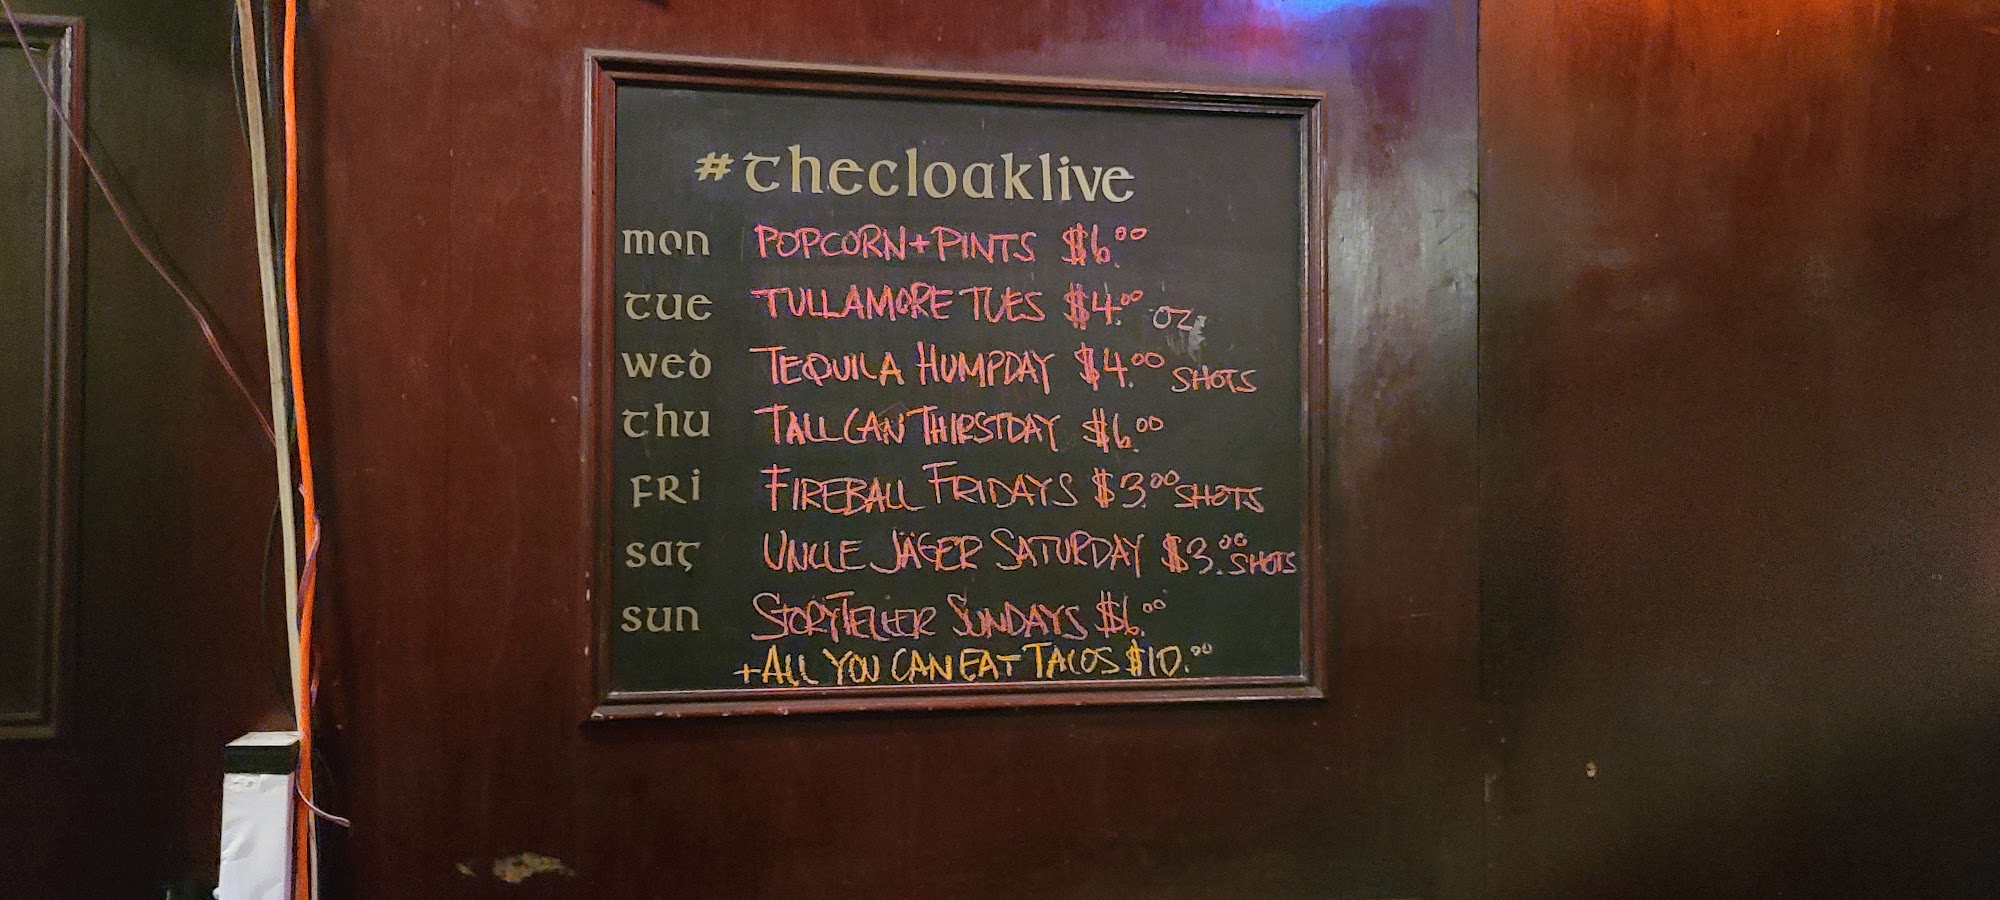 #thecloaklive
mon POPCORN+PINTS $6.00
tue TULLAMORE TUES $4.00 OZ
wed TEQUILA HUMPDAY $4.00 SHOTS
thu TALL CAN THIRSTDAY $6.00
FRi FIREBALL FRIDAYS $3.00 SHOTS
sat UNCLE JÄGER SATURDAY $3.00 SHOTS
sun STORYTELLER SUNDAYS $6.00
+ALL YOU CAN EAT TACOS $10.00